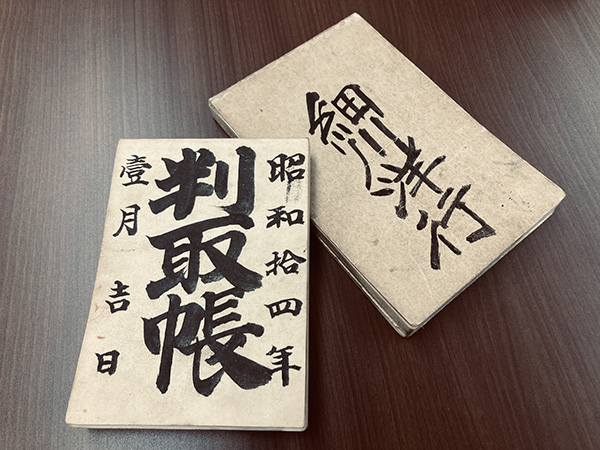 昭和拾四年
判取帳
壹月吉日
細川洋行